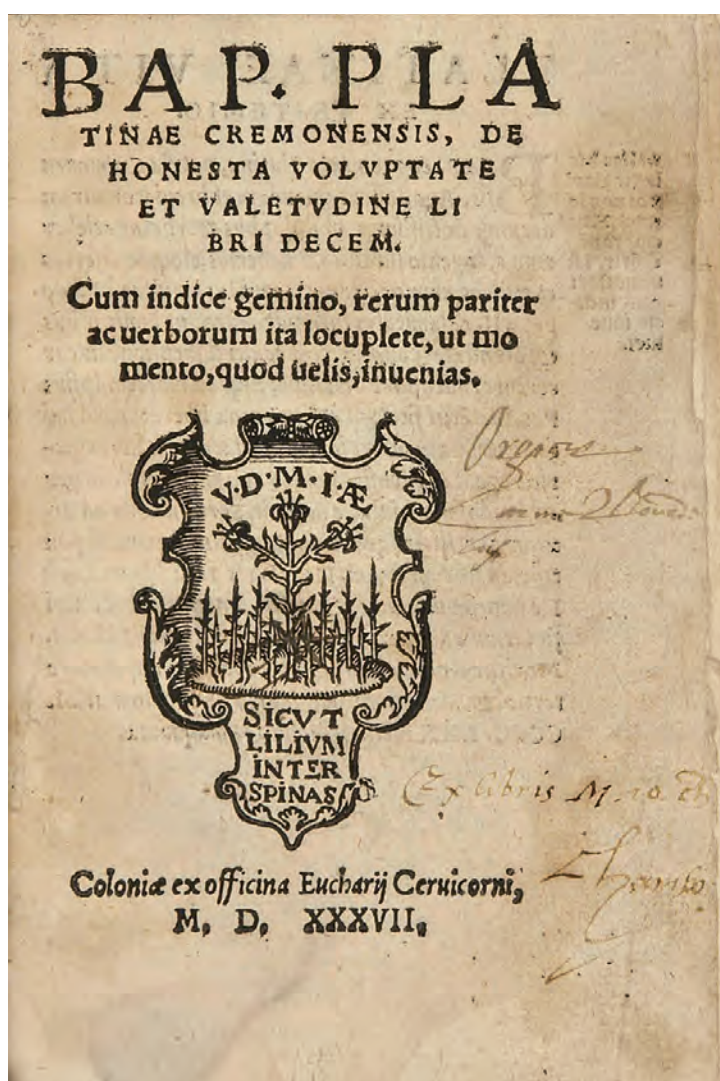 BAP. PLA
TINAE CREMONENSIS, DE
HONESTA VOLVPTATE
ET VALETVDINE LI
BRI DECEM.
Cum indice gemino, rerum pariter
ac uerborum ita locuplete, ut mo
mento, quod uelis, inuenias.
V·D·M·I·Æ
SICVT
LILIVM
INTER
SPINAS
Ex libris
Coloniæ ex officina Eucharij Ceruicorni,
M. D. XXXVII.